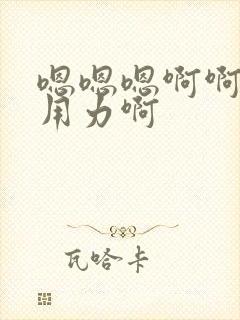 嗯嗯嗯啊啊
用力啊
瓦哈卡